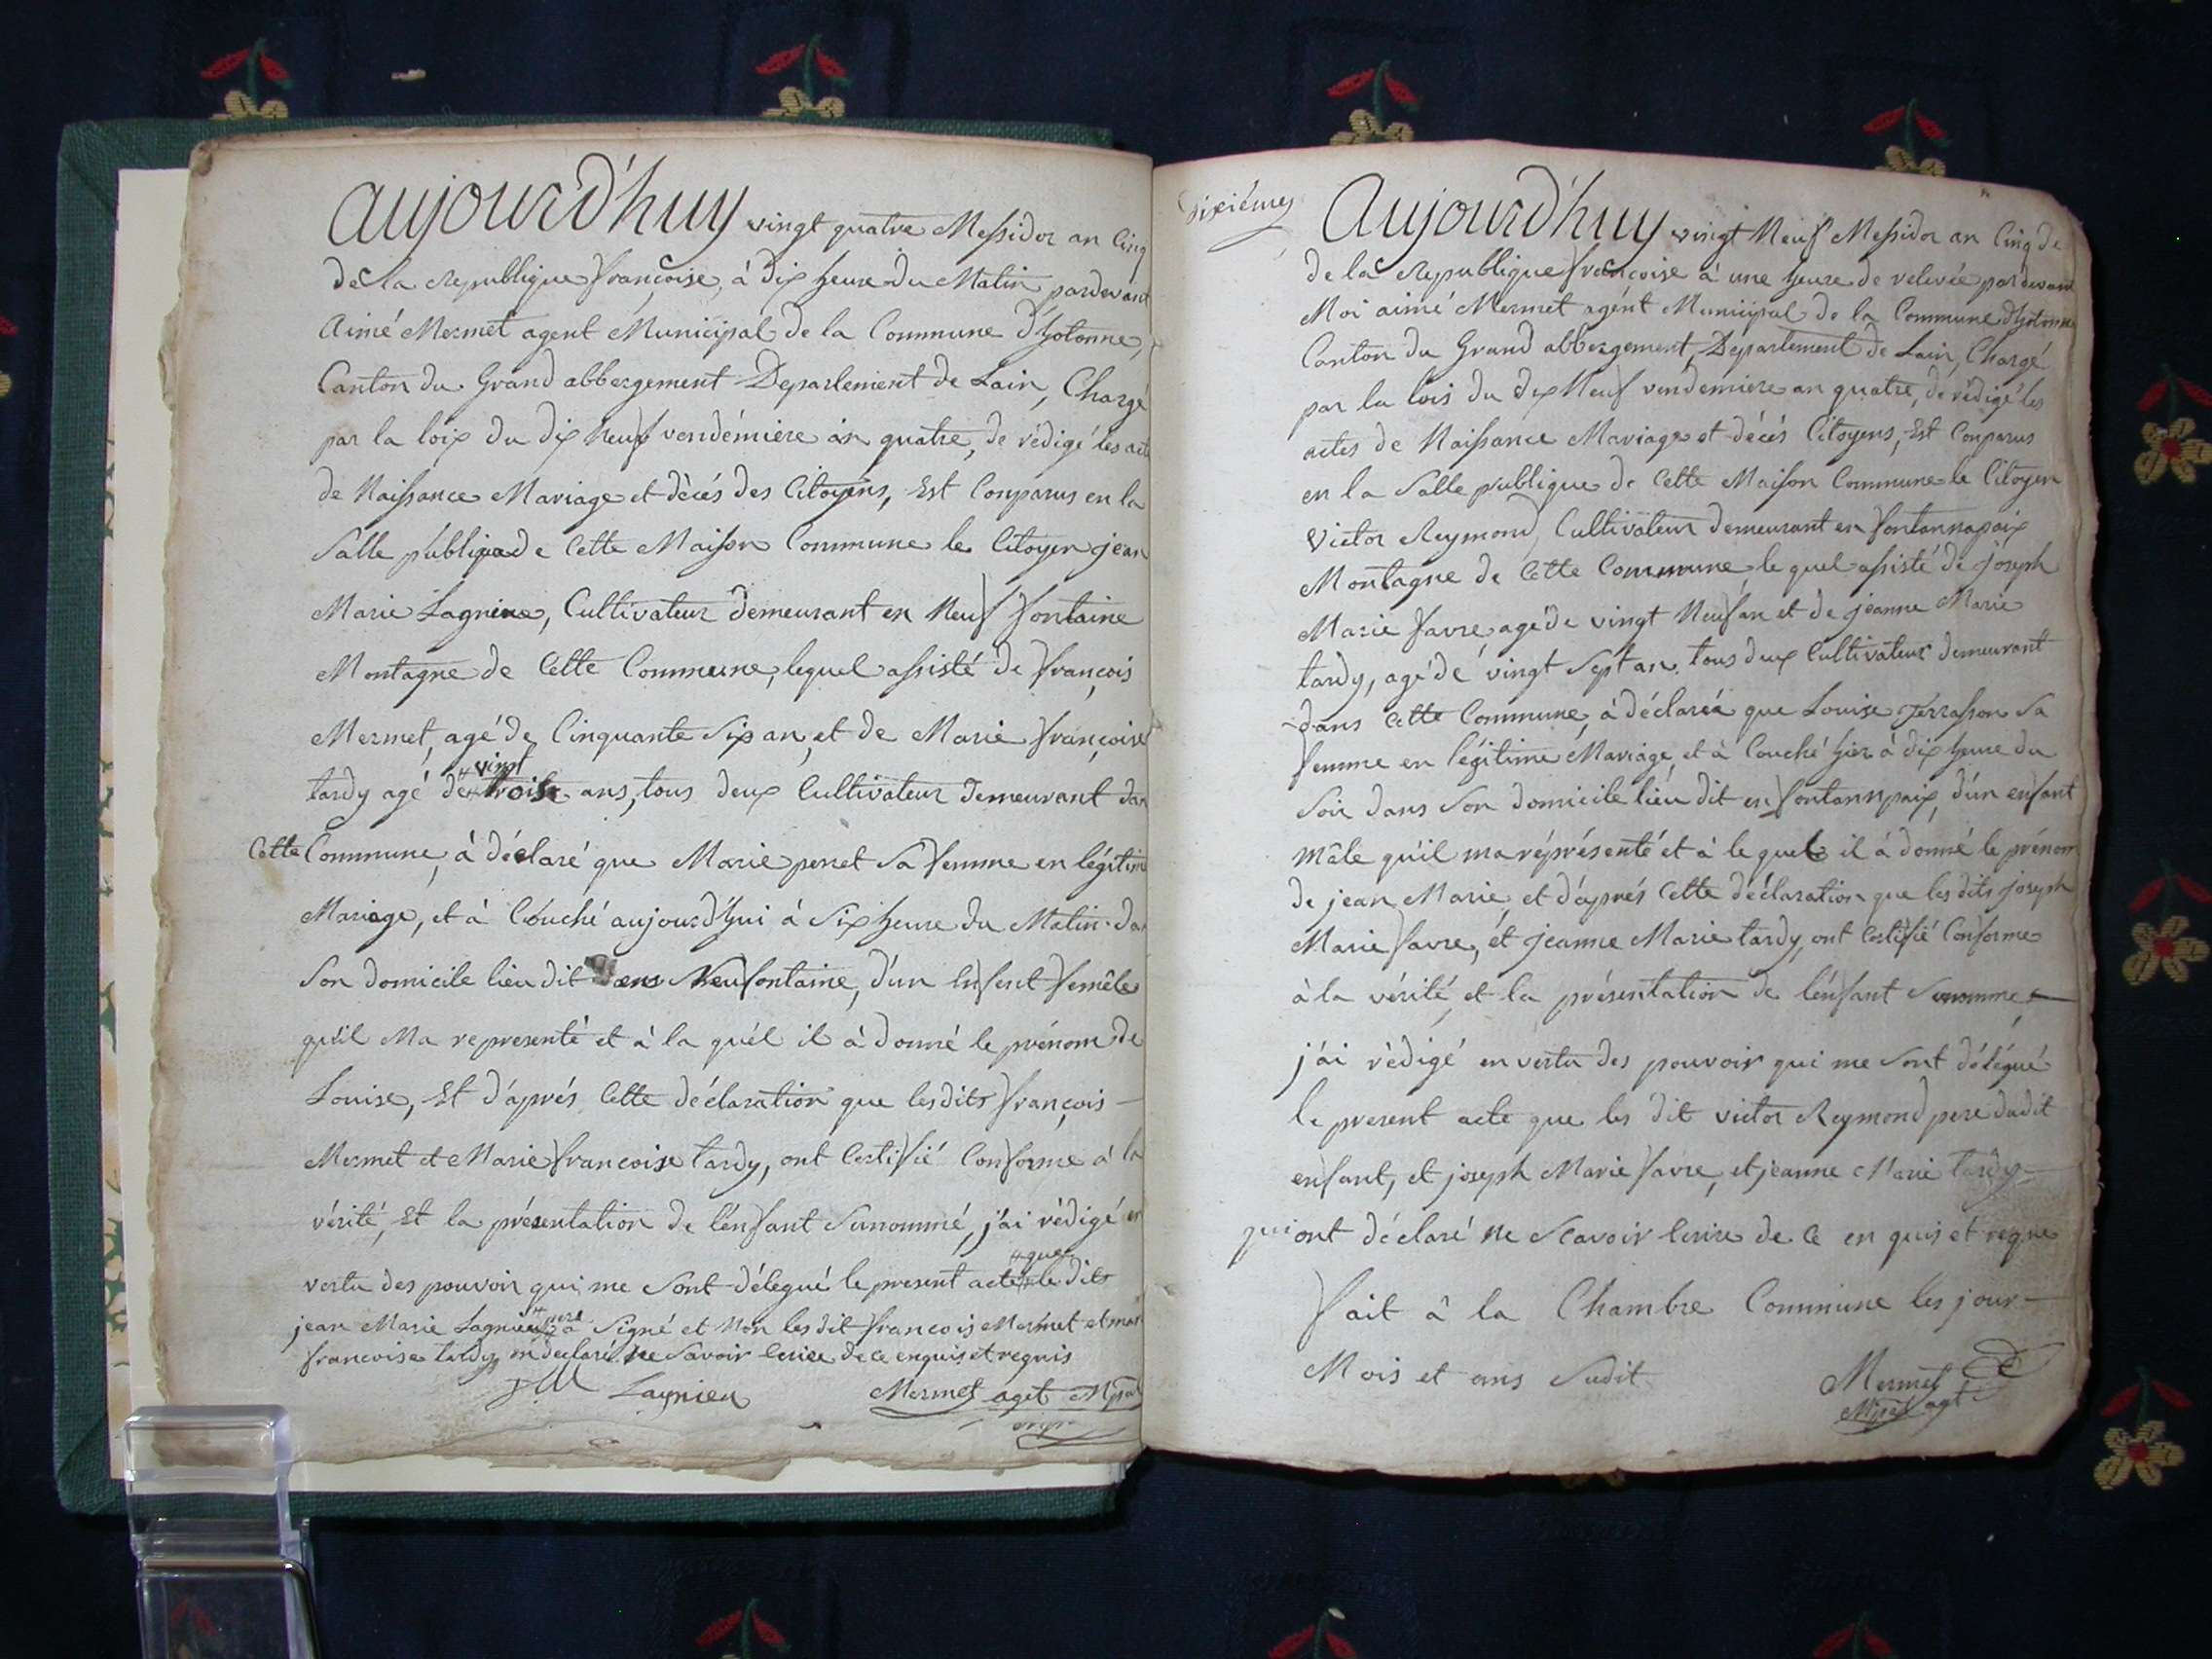 aujourd'huy vingt quatre Messidor an Cinq
de la republique françoise, à dix heure du Matin pardevant
Aimé Mermet agent Municipal de la Commune d'hotonne,
Canton du Grand abbergement Departement de Lain, Chargé
par la loix du dix Neuf vendémiere an quatre, de rédigé les acte
de Naissance Mariage et décés des Citoyens, Est Conparus en la
Salle publique de Cette Maison Commune le Citoyen jean
Marie Lagnieu, Cultivateur demeurant en Neuf fontaine
Montagne de Cette Commune, lequel assisté de françois
Mermet, agé de Cinquante Six an, et de Marie françoise
vingt
tardy agé de trois ans, tous deux Cultivateur demeurant dan
Cette Commune, à déclaré que Marie penet Sa femme en légitime
Mariage, et à Couché aujourd'hui à Six heure du Matin da
Son domicile lieu dit en Neuffontaine, d'un Enfent femêle
qu'il Ma representé et à la quél il à donné le prénom de
Louise, Et d'aprés Cette déclaration que lesdits françois
Mermet et Marie françoise tardy, ont Certifié Conforme à la
vérité, Et la présentation de l'énfant Sunommé, j'ai rédigé en
que
vertu des pouvoir qui me Sont délegué le present acte le dits
pere
jean Marie Lagnieu à Signé et Non les dit francois Mermet et mar
francoise tardy on declaré ne Savoir Ecrire de ce enquis et requis
JM Lagnieu Mermet aget Mpal
dixiémes
Aujourd'huy vingt Neuf Messidor an Cinq de
de la Republique françoise à une heure de relevée pardevant
Moi aimé Mermet agént Municipal de la Commune d'hotonne
Canton du Grand abbergement, Departement de Lain, Chargé
par la lois du dix Neuf vendemiere an quatre, de rédigé les
actes de Naissance Mariage et décés Citoyens, Est Conparus
en la Salle publique de Cette Maison Commune le Citoyen
Victor Reymond, Cultivateur demeurant en fontannapaix
Montagne de Cette Commune, le quel assisté de joseph
Marie favre, agé de vingt Neuf an et de jeanne Marie
tardy, agé de vingt Sept an tous deux Cultivateur demeurant
dans Cette Commune, à déclaréé que Louise Jerrasson Sa
femme en légitime Mariage, et à Couché hier à dix heure du
Soir dans Son domicile lieu dit en fontannpaix, d'un enfant
Mâle qu'il ma réprésenté et à le quel il à donné le prénom
de jean Marie, et d'aprés Cette déclaration que les dits joseph
Marie favre, et jeanne Marie tardy, ont Certifié Conforme
à la vérité, et la présentation de l'énfant Sunomme
j'ai rédigé en vertu des pouvoir qui me Sont délégué
le present acte que les dit victor Reymond pere dudit
enfant, et joseph Marie favre, et jeanne Marie tardy
qui ont déclaré Ne Scavoir Ecrire de Ce en quis et reque
fait à la Chambre Commune les jour
Mois et ans Sudit
Mermet
Mpal agt